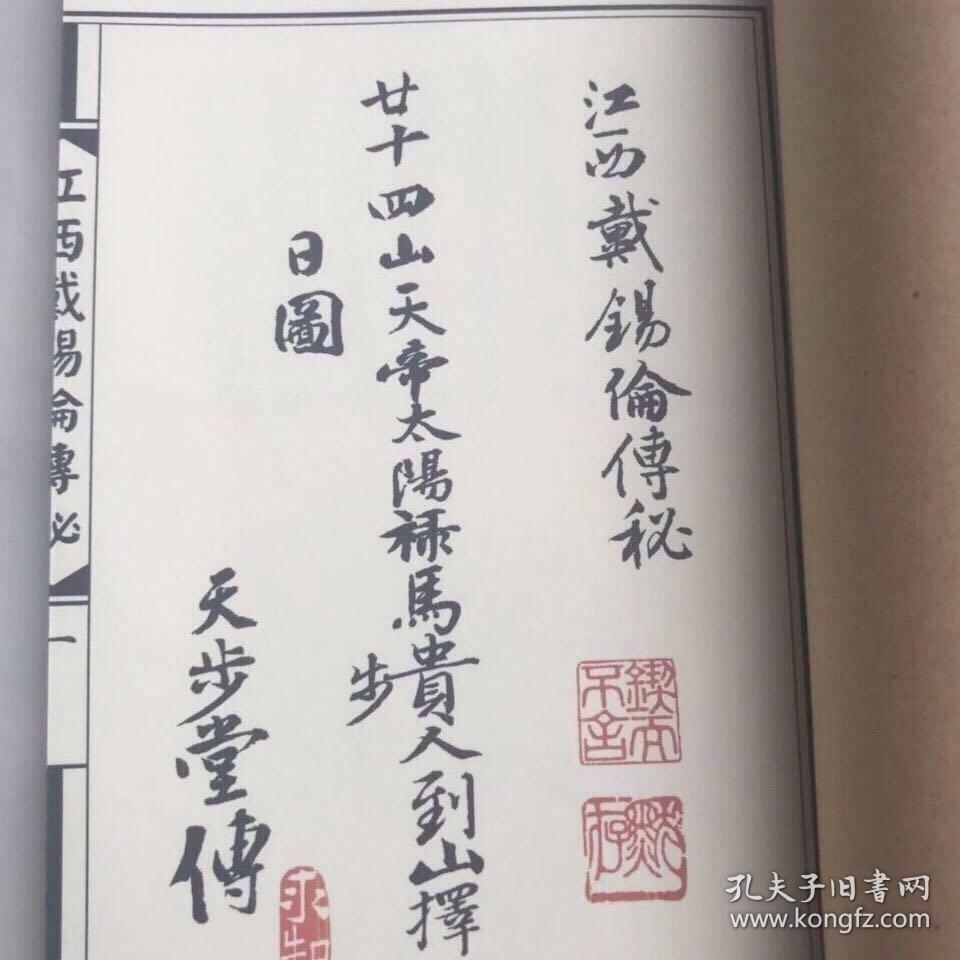 江西戴錫倫傳秘
廿十四山天帝太陽禄馬貴人到山擇
步
日圖
天步堂傳
鍥而不舍
江西戴錫倫傳秘
一
孔夫子旧書网
www.kongfz.com